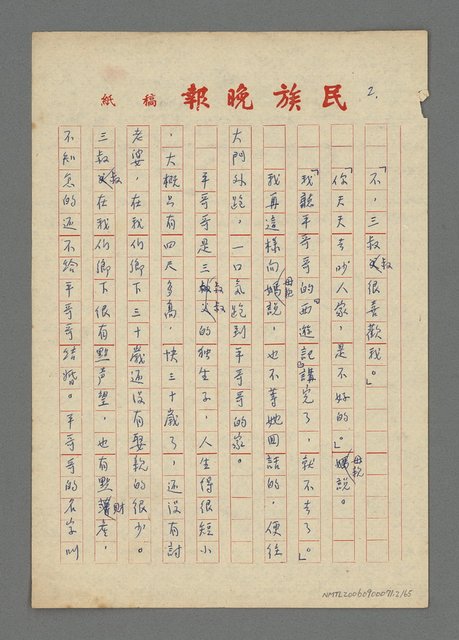 2.
民族晚報 稿紙
「不,三叔叔很喜歡我。」
「你天天去吵人家,是不好的。」母親說。
「我聽平哥哥的『西遊記』講完了,就不去了。」
我再這樣向母親說,也不等她回話的,便往
大門外跑,一口氣跑到平哥哥的家。
平哥哥是三叔叔的独生子,人生得很短小
,大概只有四尺多高,快三十歲了,还沒有討
老婆,在我们鄉下三十歲还沒有娶親的很少。
三叔叔在我们鄉下很有點声望,也有點財產,
不知怎的还不给平哥哥结婚。平哥哥的名字叫
NMTL20060900071.2/65